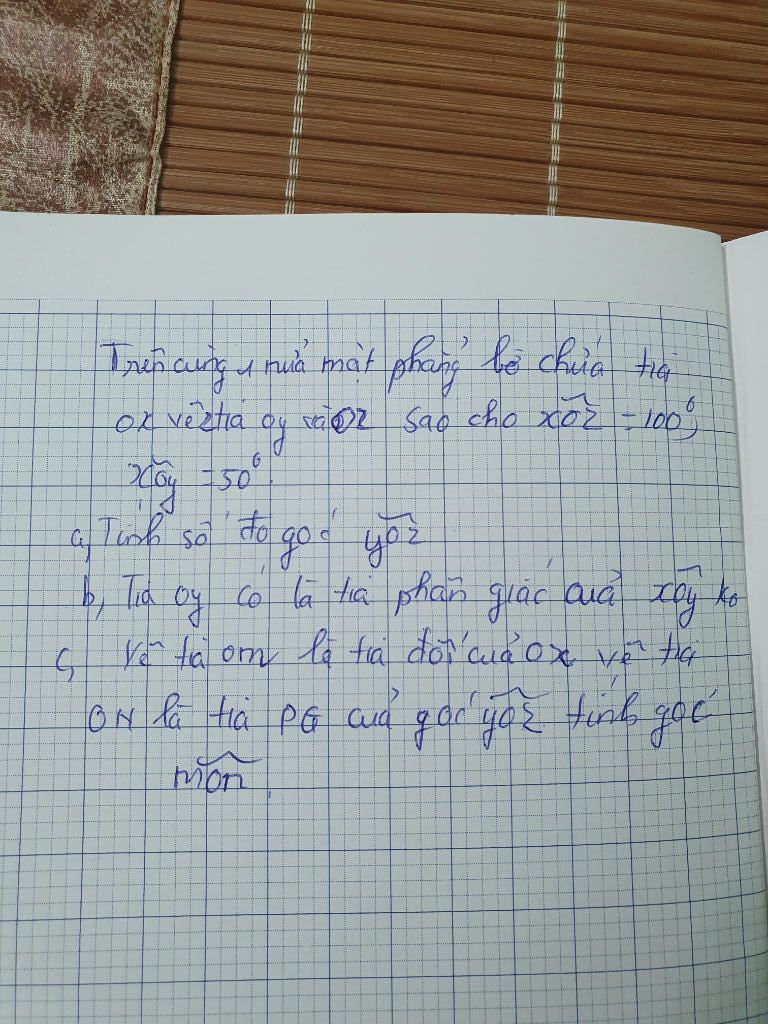 Trên cùng 1 nửa mặt phẳng bờ chứa tia
ox vẽ tia oy và oz sao cho xôz = 100°,
xôy = 50°.
a, Tính số đo góc yôz
b, Tia oy có là tia phân giác của xôy ko
c, vẽ tia om là tia đối của ox vẽ tia
ON là tia PG của góc yôz. tính góc
môn.